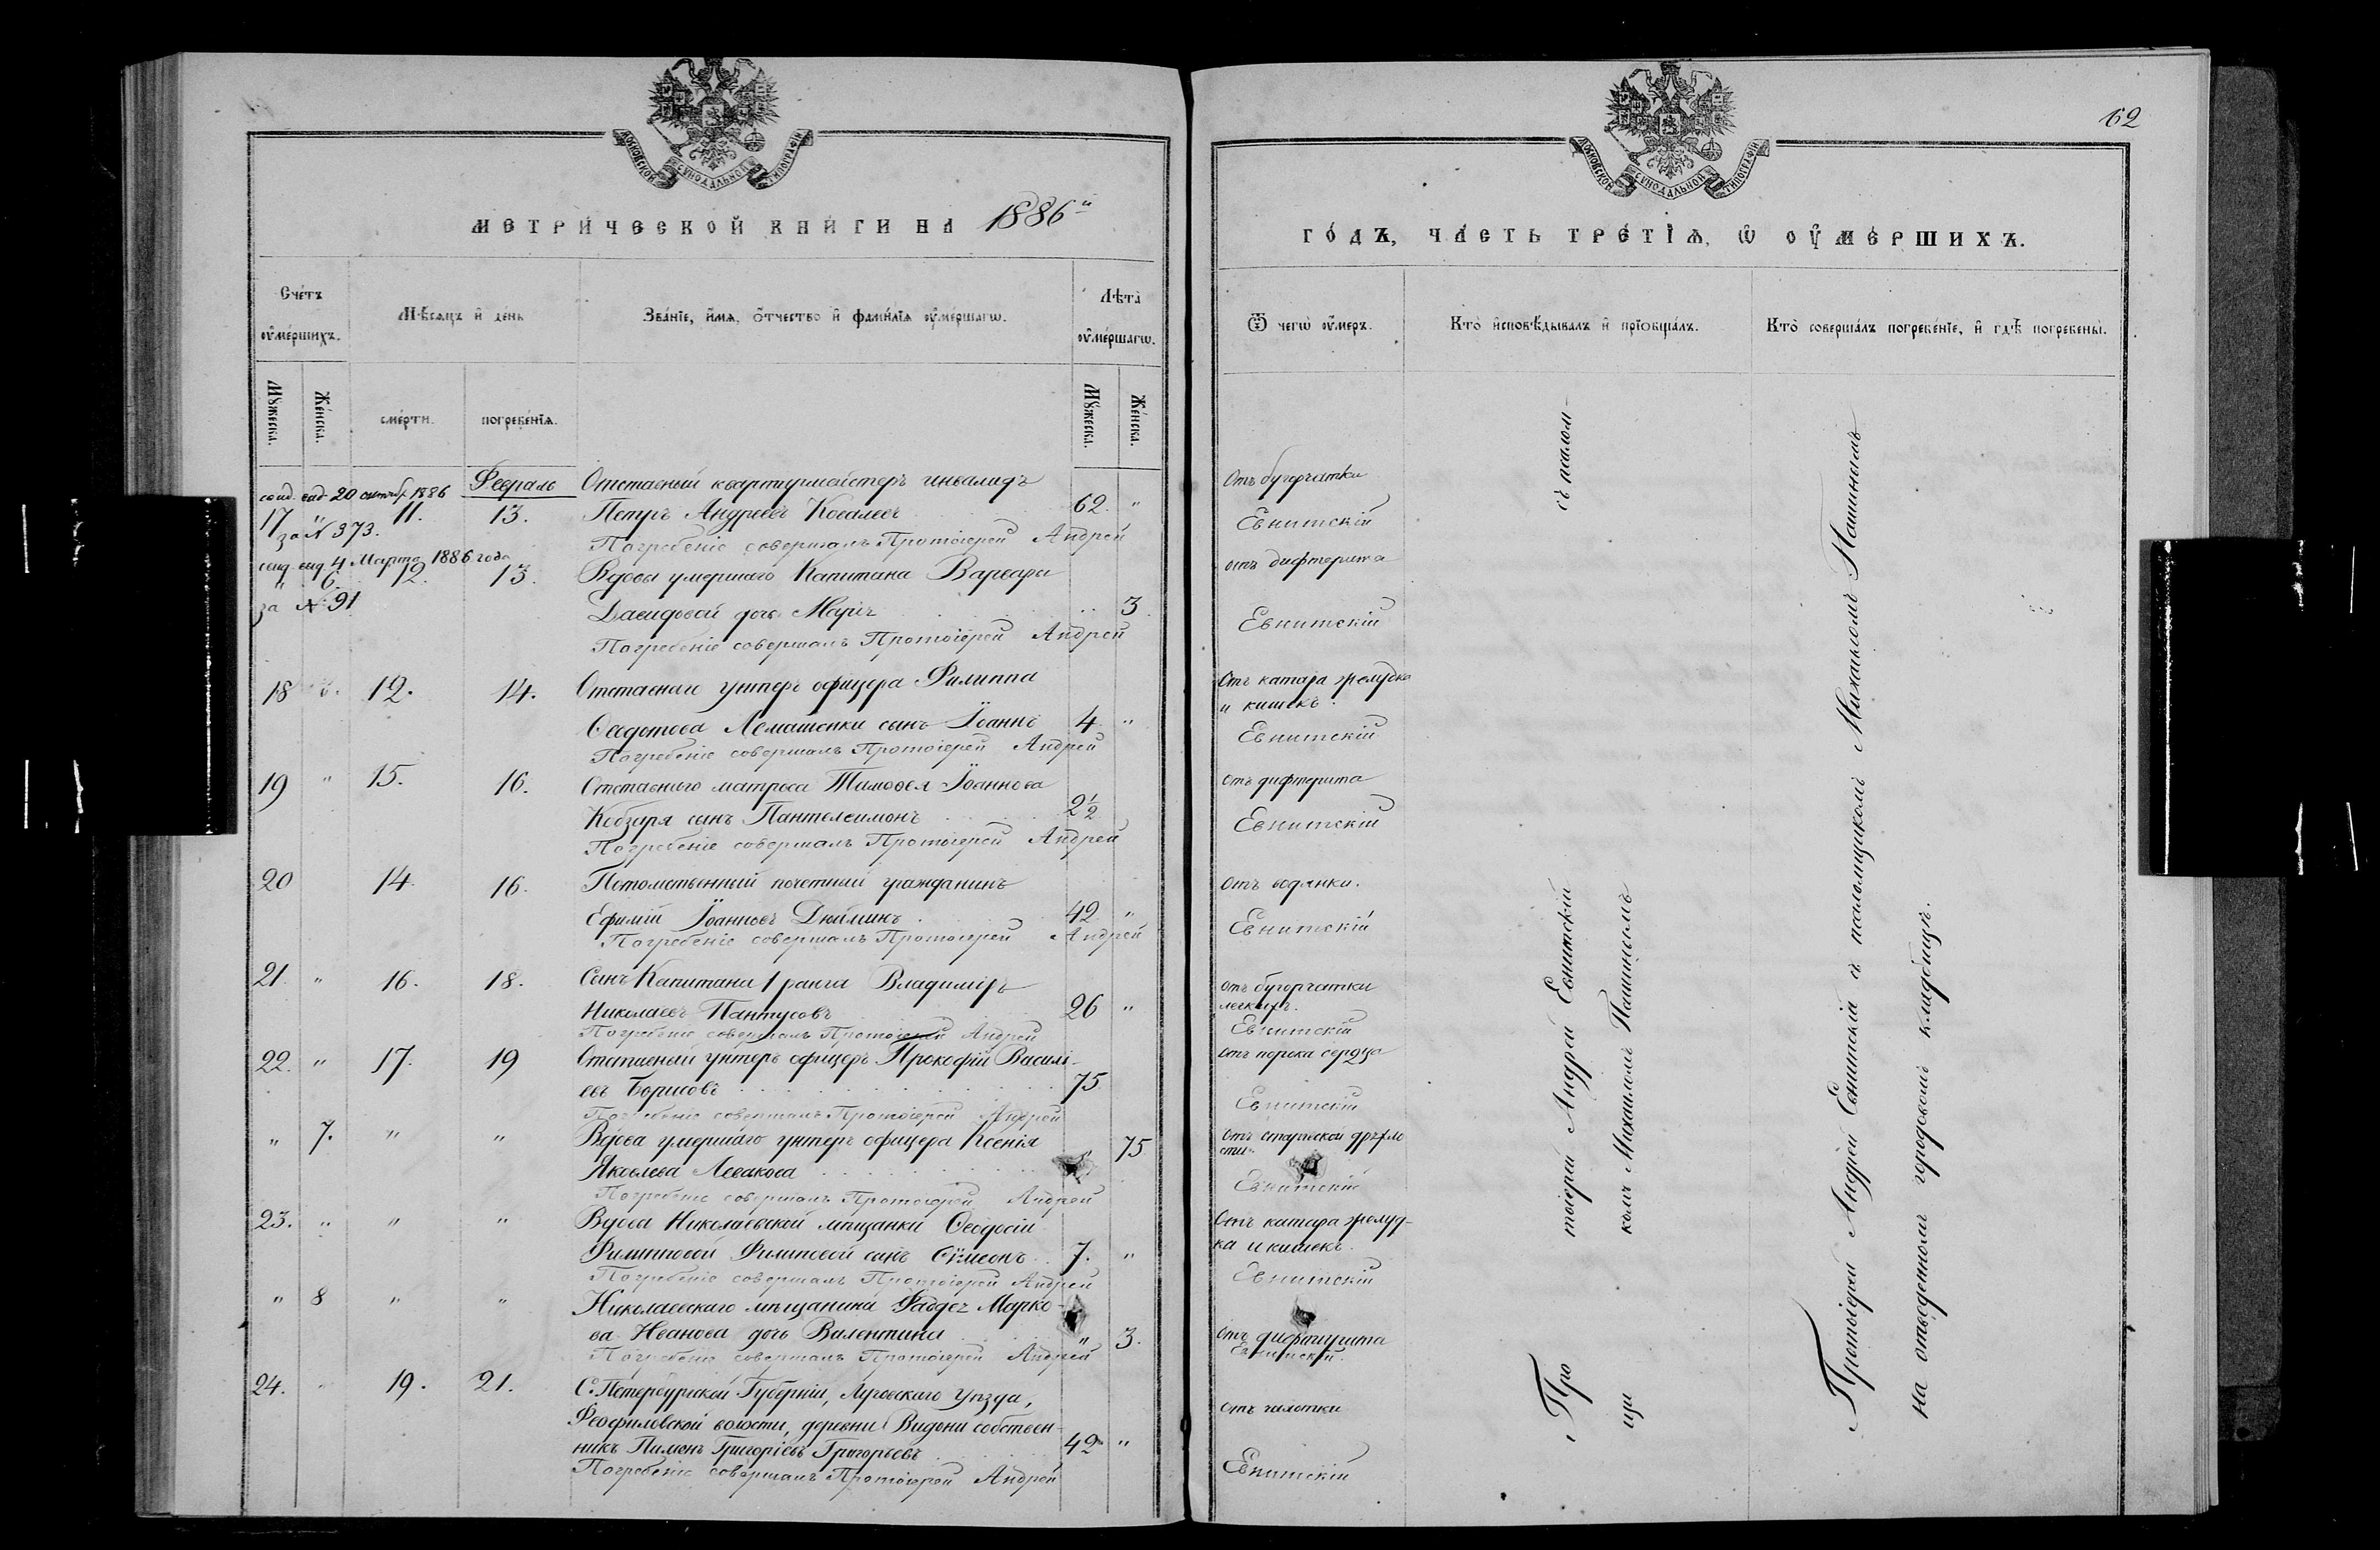 МОСКОВСКОЙ СѴНОДАЛЬНОЙ ТИПОГРАФІИ
МЕТРИЧЕСКОЙ КНИГИ НА 1886й
Счетъ
оумершихъ.
Мѣсяцъ и день
Званїе, имя, отчество и фамилїя оумершагѡ.
Лѣта
оумершагѡ.
Мꙋжеска.
Женска.
смерти.
погребенїя.
Мꙋжеска.
Женска.
Февраль
свид. выд. 20 октяб. 1886
Отставный квартирмейстеръ инвалидъ
17 " 11. 13. Петръ Андреевъ Ковалевъ 62. "
за № 373.
Погребеніе совершалъ Протоіерей Андрей
свид. выд. 4 Марта 1886 года
" 6. 12. 13. Вдовы умершаго Капитана Варвары
за № 91
Давидовой дочь Марія " 3.
Погребеніе совершалъ Протоіерей Андрей
18 12. 14. Отставнаго унтеръ офицера Филиппа
Ѳеодотова Лемашенки сынъ Іоаннъ 4 "
Погребеніе совершалъ Протоіерей Андрей
19 " 15. 16. Отставнаго матроса Тимоѳея Іоаннова
Кобзаря сынъ Пантелеимонъ 2½
Погребеніе совершалъ Протоіерей Андрей
20 14. 16. Потомственный почетный гражданинъ
Ефимій Іоанновъ Дюминъ 42 "
Погребеніе совершалъ Протоіерей Андрей
21. " 16. 18. Сынъ Капитана 1 ранга Владиміръ
Николаевъ Пантусовъ 26 "
Погребеніе совершалъ Протоіерей Андрей
22. " 17. 19 Отставный унтеръ офицеръ Прокофій Василі-
евъ Борисовъ 75
Погребеніе совершалъ Протоіерей Андрей
" 7. " " Вдова умершаго унтеръ офицера Ксенія
Яковлева Левакова " 75
Погребеніе совершалъ Протоіерей Андрей
23. " " " Вдовы Николаевской мѣщанки Ѳеодосіи
Филипповой Филиповой сынъ Сѵмеонъ 7. "
Погребеніе совершалъ Протоіерей Андрей
" 8 " " Николаевскаго мѣщанина Фаддея Марко-
ва Иванова дочь Валентина " 3.
Погребеніе совершалъ Протоіерей Андрей
24. " 19. 21. С.Петербургской Губерніи, Луговскаго уѣзда,
Феофиловской волости, деревни Видони собствен-
никъ Пименъ Григоріевъ Григорьевъ 42 "
Погребеніе совершалъ Протоіерей Андрей
МОСКОВСКОЙ СѴНОДАЛЬНОЙ ТИПОГРАФІИ
62
ГОДЪ, ЧАСТЬ ТРЕТІЯ, Ѡ ОУМЕРШИХЪ.
Ѿ чегѡ оумеръ.
Кто исповѣдывалъ и прїобщалъ.
Кто совершалъ погребенїе, и гдѣ погребены.
Отъ бугорчатки
Евнитскій
отъ дифтерита
Евнитскій
Отъ катара желудка
и кишекъ.
Евнитскій
отъ дифтерита
Евнитскій
отъ водянки.
Евнитскій
отъ бугорчатки
легкихъ.
Евнитскій
отъ порока сердца
Евнитскій
отъ старческой дряхло
сти.
Евнитскій
Отъ катара желуд-
ка и кишекъ.
Евнитскій
отъ дифтерита
Евнитскій.
отъ чахотки
Евнитскій
Протоіерей Андрей Евнитскій съ псалом-
щикомъ Михаиломъ Пашинымъ
Протоіерей Андрей Евнитскій съ псаломщикомъ Михаиломъ Пашинымъ
на отведенномъ городовомъ кладбищѣ.